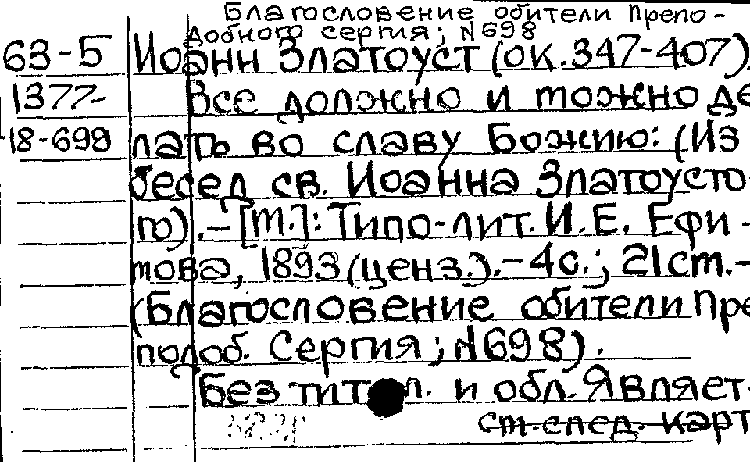 Благословение обители Препо-
добного сергия; N698
63-5 Иоанн Златоуст (ок.347-407)
1377- Все должно и можно де
18-699 лать во славу Божию: (Из
бесед св. Иоанна Златоусто
го).-[М.]: Типо-лит. И.Е. Ефи-
мова, 1893 (ценз.).-4с.; 21см.-
(Благословение обители Пре
подоб. Сергия; N698).
Без тит. л. и обл. Являет.
см. след. карт